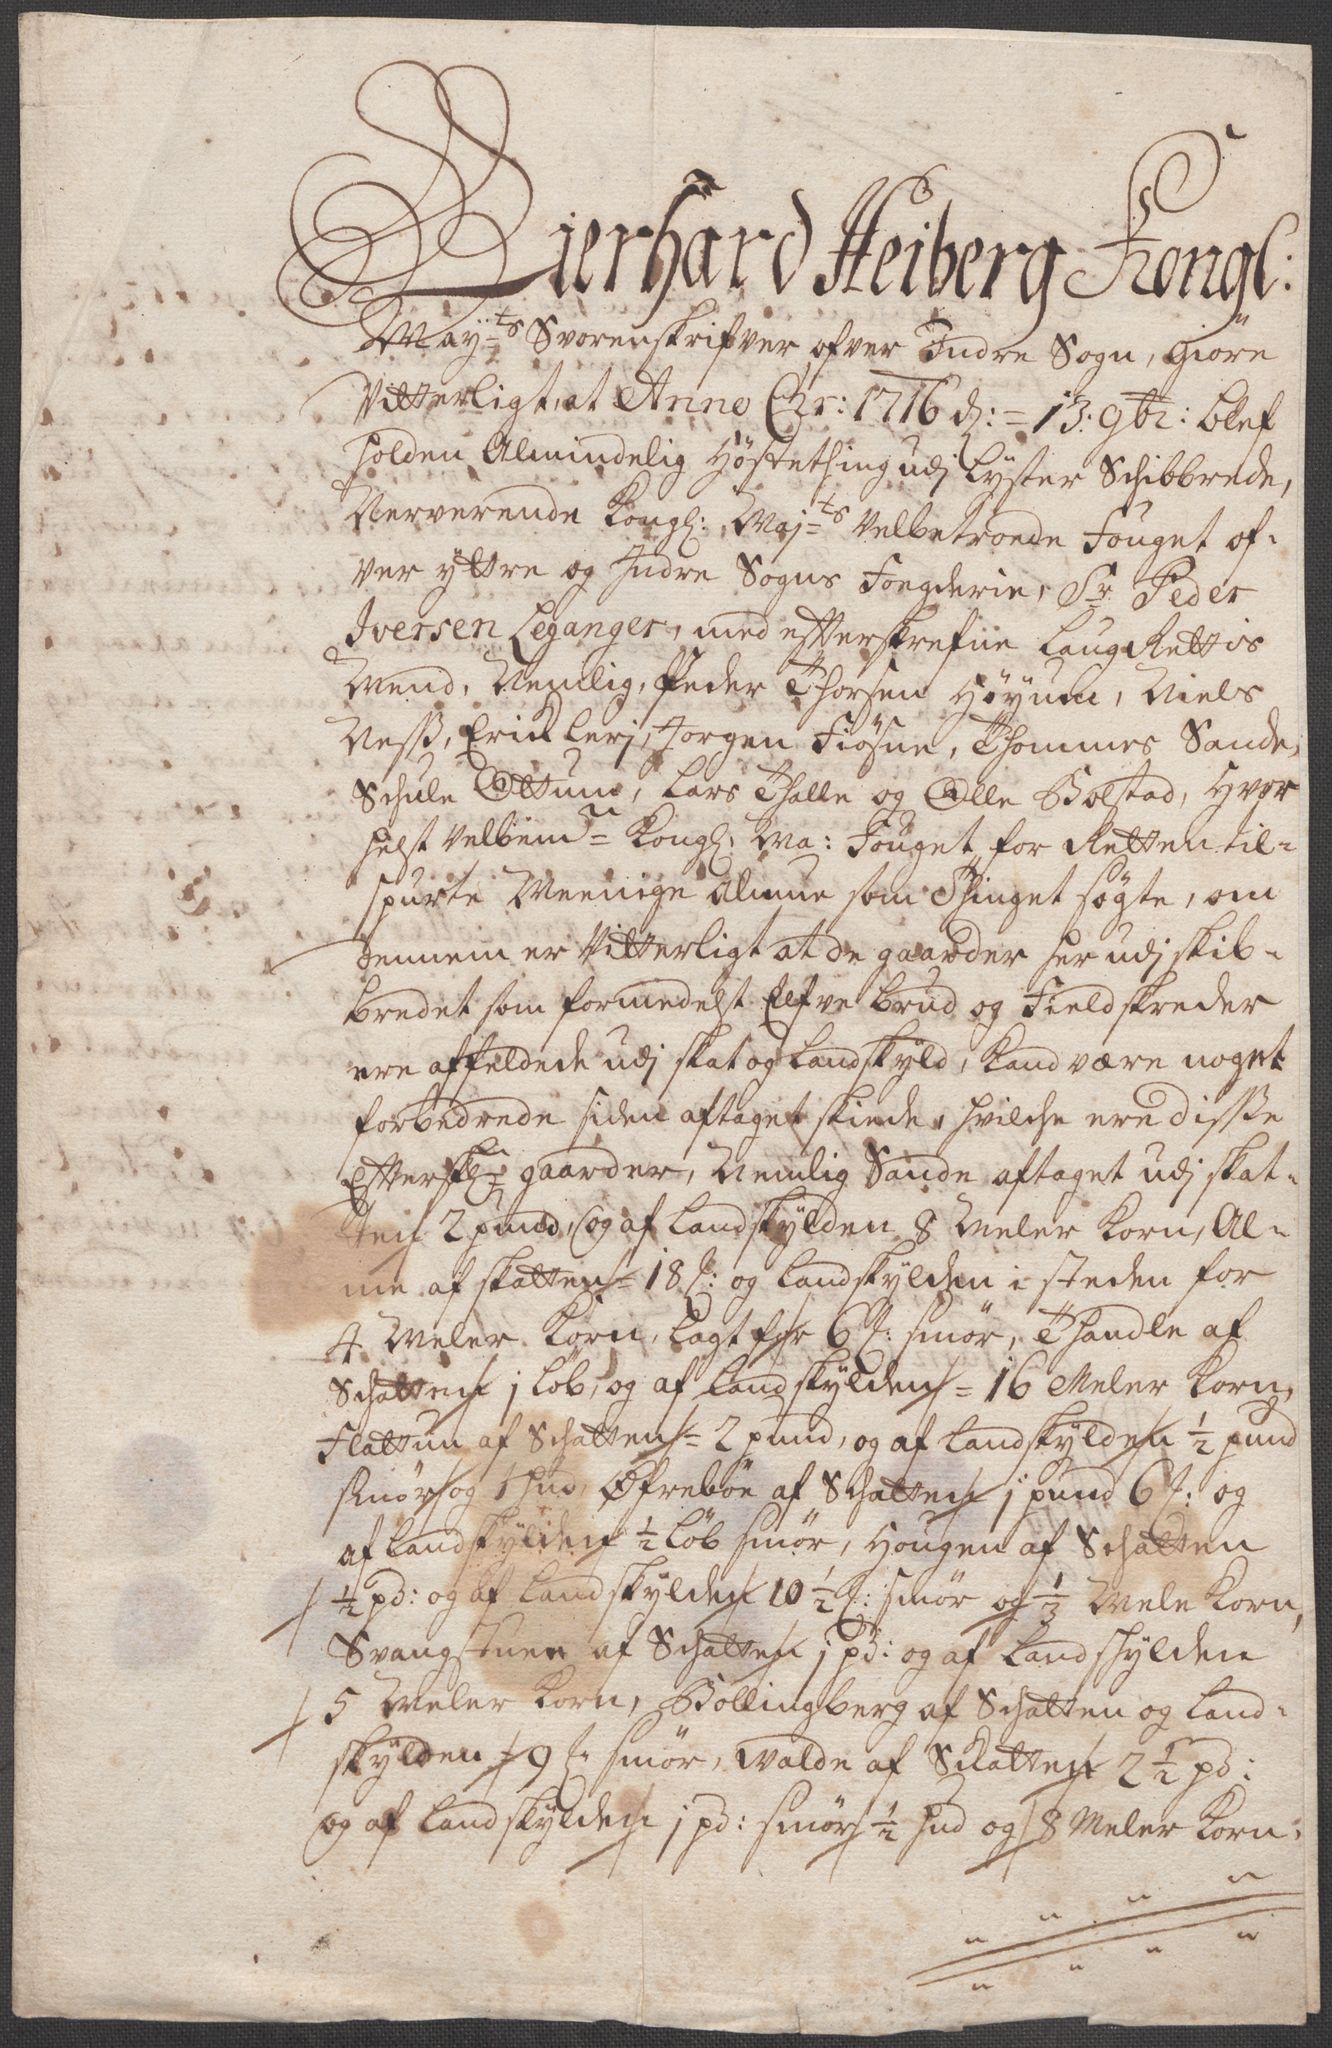 Gierhard Heiberg Kongl:
May:ts Svorenskrifver, ofver Indre Sogn, Giöre
Vitterligt, at Anno Chr: 1716 d: = 13: 9br: blef
holden Almindelig Höstething udj Lyster Schibbrede,
Nerverende Kongl: Maj:ts Velbetroede Fouget of-
ver yttre og Indre Sogns Fogderie, Sr Peder
Iversen Leganger, med efterskrefne Laug Rettis
Mend, Nemlig, Peder Thorsen Höyum, Niels
Ness, Erick Lerj, Jorgen Fiösne, Thommes Sande,
Schule Ottum, Lars Thalle og Olle Bolstad, Hvor
helst Velbem:te Kongl: Ma: Fouget for Retten til-
spurte Meenige Almue som Thinget sögte, om
dennem er Vitterligt at de gaarder her udj skib-
bredet som formedelst Elfve brud og Fieldskreder
ere affeldede udj skat og Landskyld, kand være noget
forbedrede siden aftaget skiede, hvilche ere disse
Efterskr: gaarder, Nemlig Sande aftaget udj skat-
ten 2 pund, og af Landskylden 8 Meler Korn, Al-
me af skatten = 18 s: og Landskylden i steden for
4 Meler Korn, lagt for 6 s: smör, Thandle af
Schatten j löb, og af Landskylden = 16 Meler Korn,
Flattun af Schatten = 2 pund, og af Landskylden ½ pund
smör og 1 hud, Øfreböe af Schatten j pund 6 s: og
af Landskylden ½ löb smör, Hougen af Schatten
½ pd: og af Landskylden 10 ½ s: smör og ⅓ Mele Korn,
Svangstuen af Schatten j pd: og af Landskylden
5 Meler Korn, Bollingberg af Schatten og Land-
skylden 9 s: smör, Malde af Schatten 2 ½ pd:
og af Landskylden j pd: smör ½ hud og 8 Meler Korn.